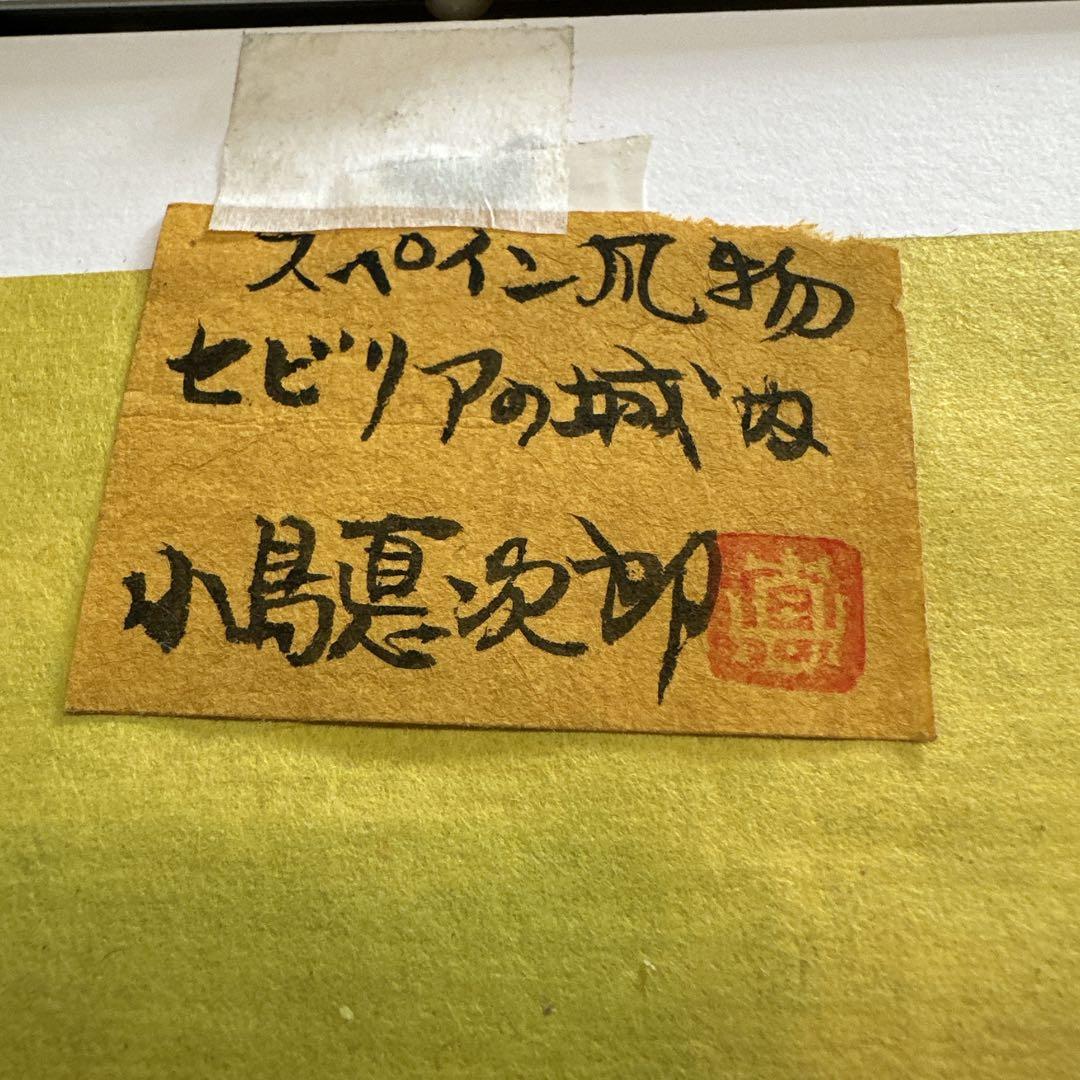 スペイン風物
セビリアの城内
小島悳次郎